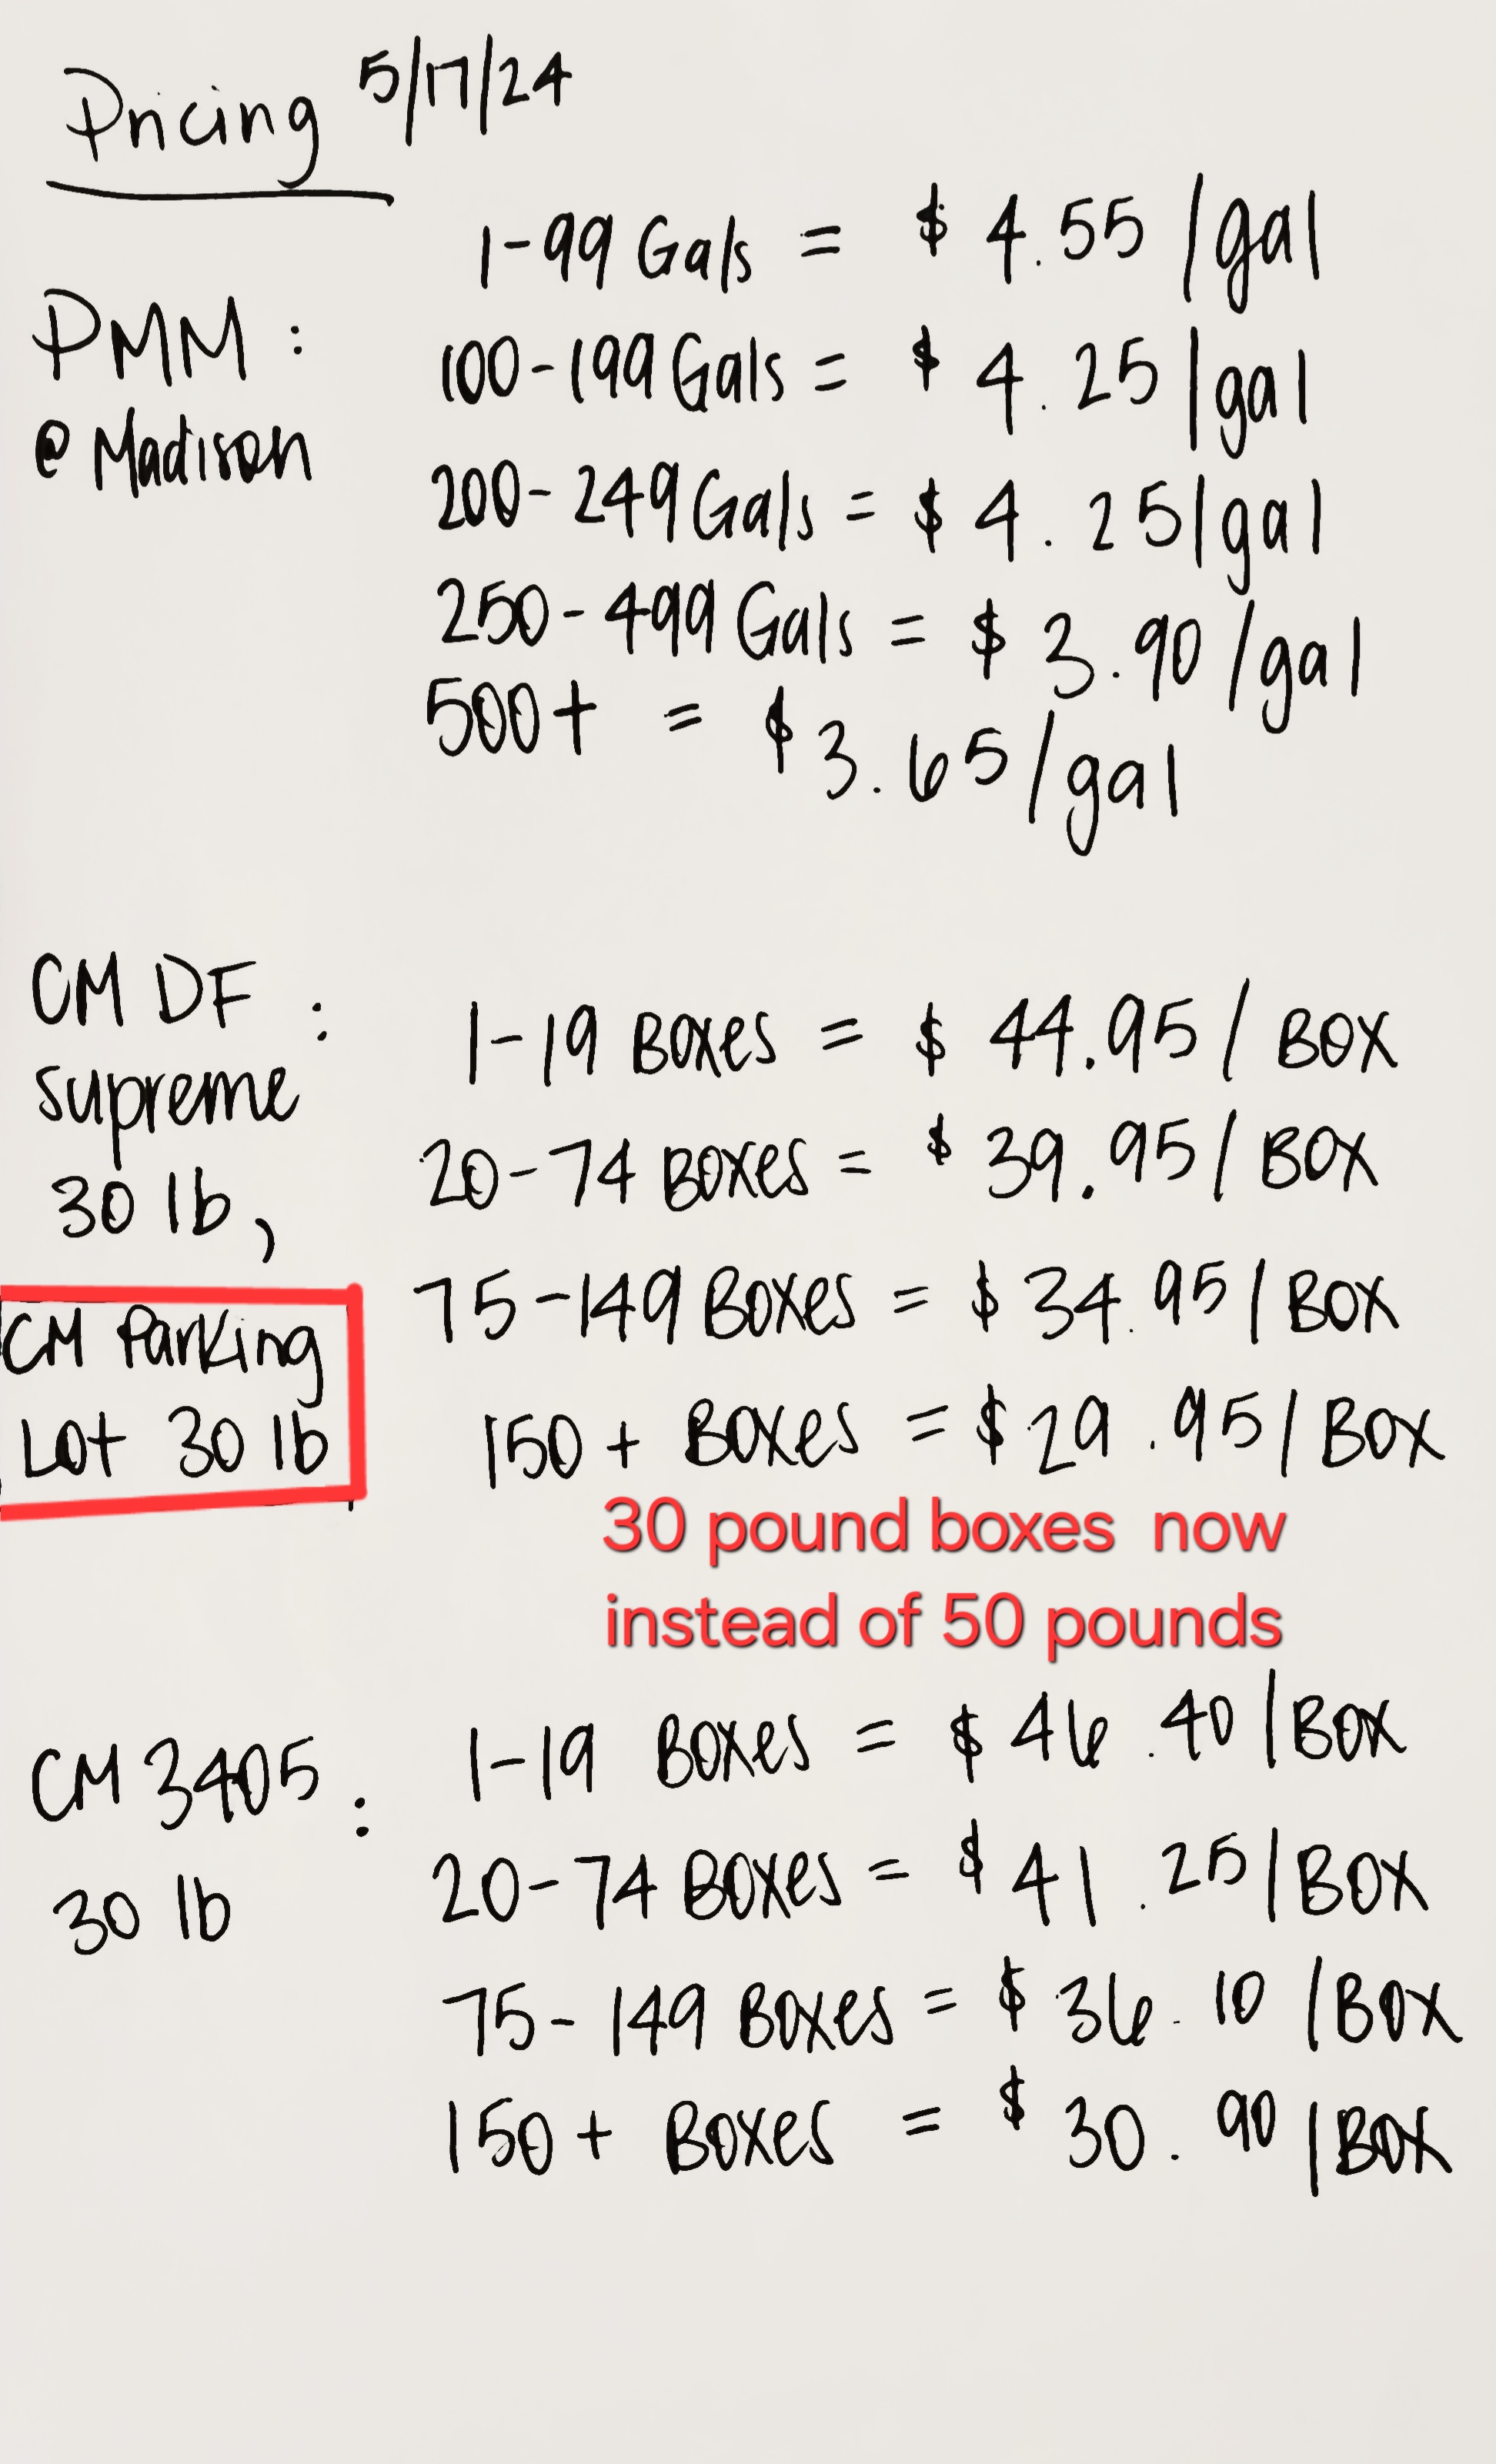 Pricing 5/17/24
PMM :
@ Madison
1-99 Gals = $ 4.55 /gal
100-199 Gals = $ 4.25 /gal
200-249 Gals = $ 4.25/gal
250-499 Gals = $ 3.90 /gal
500+ = $ 3.65/gal
CM DF :
supreme
30 lb,
CM Parking
Lot 30 lb
1-19 Boxes = $ 44.95 / BOX
20-74 Boxes = $ 39.95 / BOX
75-149 Boxes = $ 34.95 / BOX
150 + Boxes = $ 29.95 / BOX
30 pound boxes now
instead of 50 pounds
CM 3405 :
30 lb
1-19 Boxes = $ 46.40 /BOX
20-74 Boxes = $ 41.25 /BOX
75-149 Boxes = $ 36.10 /BOX
150 + Boxes = $ 30.90 /BOX